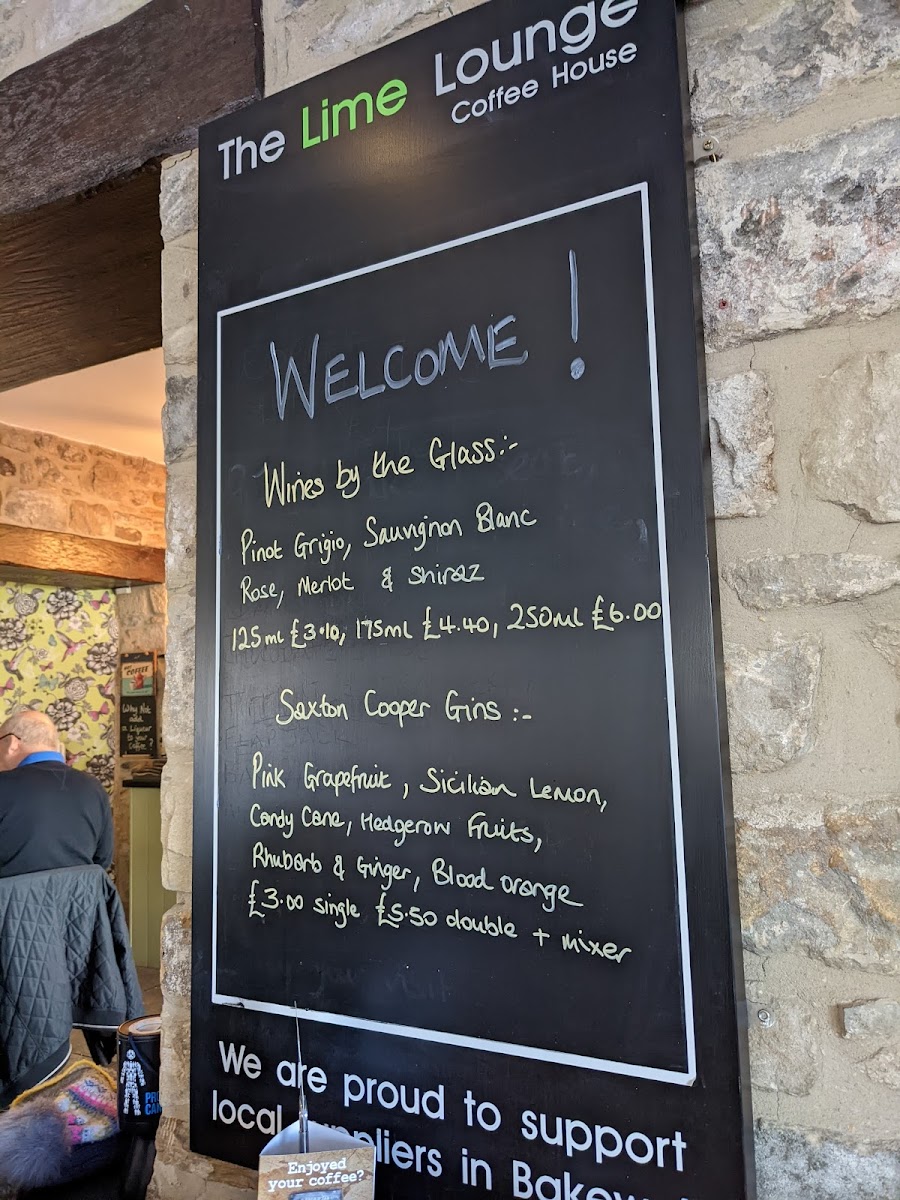 The Lime Lounge
Coffee House
WELCOME !
Wines by the Glass:-
Pinot Grigio, Sauvignon Blanc
Rose, Merlot & Shiraz
125ml £3.10, 175ml £4.40, 250ml £6.00
Saxton Cooper Gins :-
Pink Grapefruit, Sicilian Lemon,
Candy Cane, Hedgerow Fruits,
Rhubarb & Ginger, Blood orange
£3.00 single £5.50 double + mixer
We are proud to support
local in
Enjoyed
your coffee?
COFFEE
Why Not
add
a Liqueur
to your
Coffee?